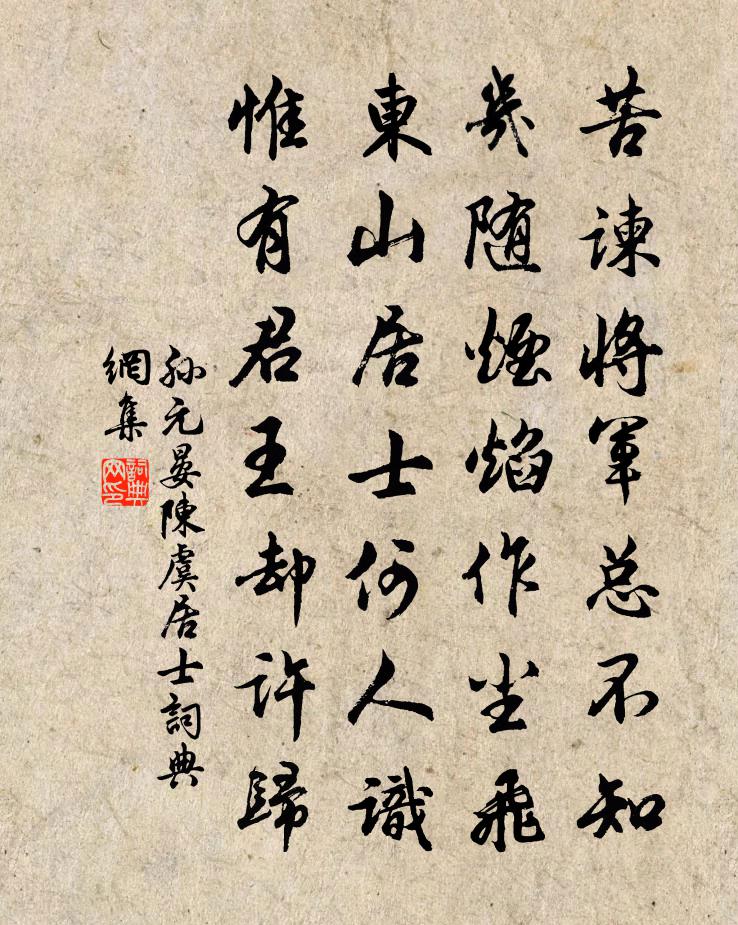 苦諫將軍总不知
幾随煙焰作尘飛
東山居士何人識
惟有君王却許歸
孙元晏陳虞居士詞典
網集
詞典
网印